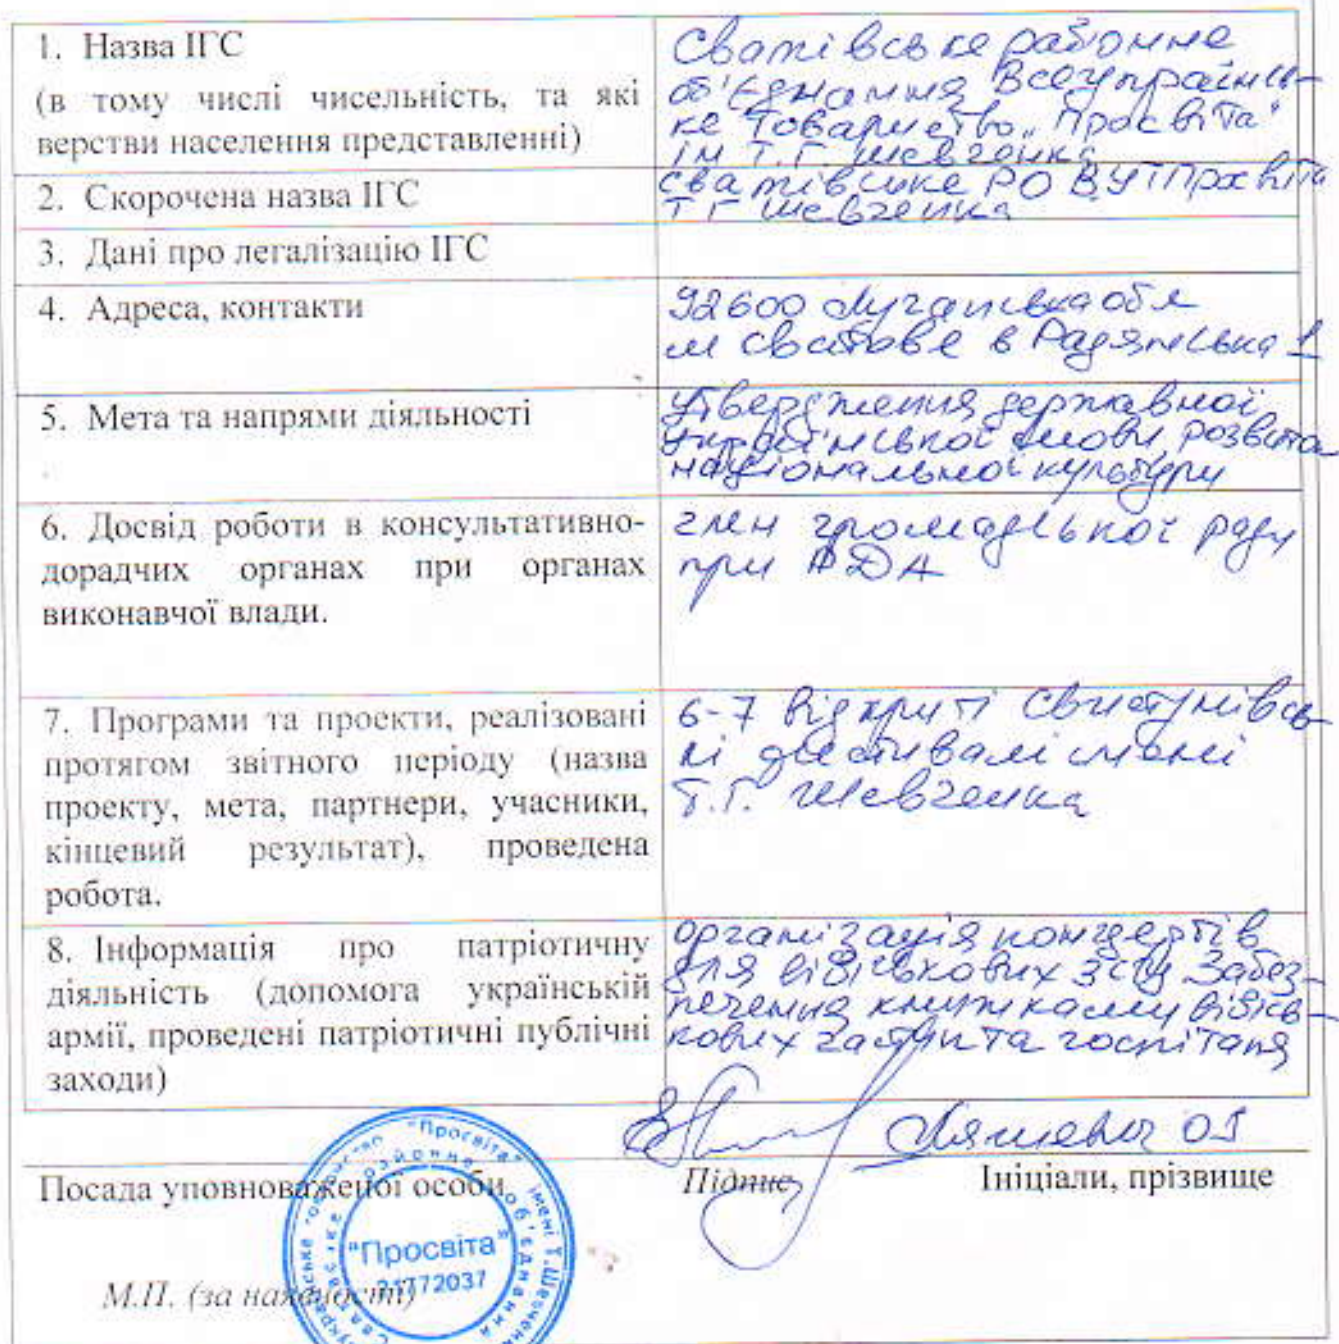 1. Назва ІГС
(в тому числі чисельність, та які
верстви населення представленні)
Сватівське районне
об'єднання Всеукраїнсь-
ке Товариство „Просвіта"
ім Т.Г. Шевченка
2. Скорочена назва ІГС
Сватівське РО ВУТ Просвіта
Т Г Шевченка
3. Дані про легалізацію ІГС
4. Адреса, контакти
92600 Луганська обл
м Сватове в Радянська 1
5. Мета та напрями діяльності
Утвердження державної
української мови, розвита
національної культури
6. Досвід роботи в консультативно-
дорадчих органах при органах
виконавчої влади.
член громадської ради
при РДА
7. Програми та проекти, реалізовані
протягом звітного періоду (назва
проекту, мета, партнери, учасники,
кінцевий результат), проведена
робота.
6-7 відкриті Свистунівсь-
кі фестивалі імені
Т.Г. Шевченка
8. Інформація про патріотичну
діяльність (допомога українській
армії, проведені патріотичні публічні
заходи)
організація концертів
для військових ЗСУ Забез-
печення книжками військ-
кових частин та госпіталя
Посада уповноваженої особи
Підпис
Ініціали, прізвище
М.П. (за наявності)
"Просвіта" імені Т.Шевченка
районне об'єднання
"Просвіта"
21772037